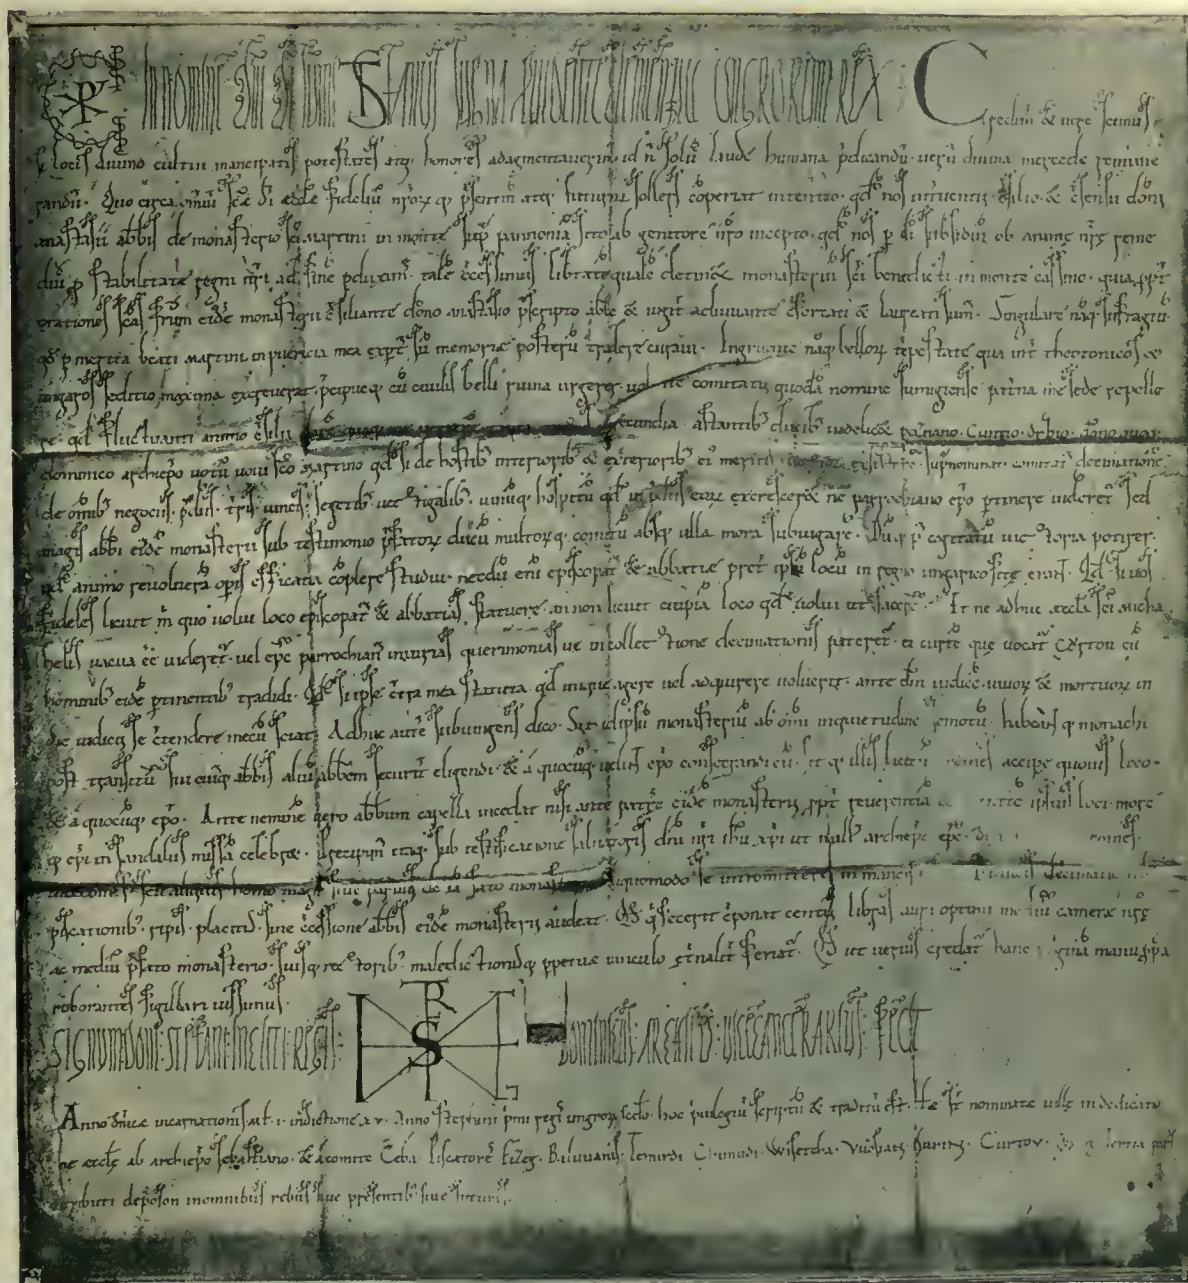 IN NOMINE DNI DI SUMMI STEPHANUS SUPERNA PROVIDENTE CLEMENTIA UNGRORUM REX. Credim & uere scimus.
si locis diuino cultui mancipatis potestates atq; honores adaugmentauerim. id n solu laude humana pdicandu. ueru diuina mercede remune
randu. Quo circa omniu scae di aecclae fideliu nrorq; psentiu atq; futuror sollers coperiat intentio. qd nos interuentu. csilio. & csensu doni
anastasii abbis de monasterio sci martini in monte sup pannonia sito ab genitore nro incepto. qd nos p di subsidiu ob anime nre reme
diu p stabilitate regni nri ad fine pduxim. tale ccessimus libertate quale detin& monasteriu sci benedicti in monte cassino. quia ppt
orationes scas frum eide monasterii csiliante dono anastasio pscripto abbe & iugit adiuuante cfortati & laureati sum. Singulare naq; suffragiu
qd p merita beati martini in puericia mea expt su memorie posteru tradere curaui. Ingruente naq; bellor tepestate qua int theotonicos &
ungaros seditio maxima excreuerat. pcipueq; cu ciuilis belli ruina urgerer. uolente comitatu quoda nomine sumigiense paterna me sede repelle
re. qd fluctuanti animo csilii secundia. astantib; ducib; uidelic& poznano. Cuntio. orzio. dono quoq;
domnico archiepo uotu uoui sco martino qd si de hostib; interiorib; & exteriorib; ei merito sup nominati comitat decimatione
de omib; negociis. pdiis. tris. uineis. segetib; uectigalib; uinuq; hospitu qd in pdiis eor excresceret ne parrochiano epo ptinere uideret sed
magis abbi eide monasterii sub testimonio pfator ducu multorq; comitu absq; ulla mora subiugare. Duq; p cogitatu uictoria potirer.
qd animo reuoluera opis efficatia coplere studui. necdu eni episcopat & abbatie pret ipsu locu in regno ungarico site erant. Qd si uos
fideles licuit m quo uolui loco episcopat & abbatias statuere. an non licuit cuipia loco qd uolui ut facere. Et ne adhuc aeccla sci micha
helis uacua ee uideret. uel epc parrochian iniurias querimonias ue in collectione decimationis pateret. ei curte que uocat Corton cu
hominib; eide ptinentib; tradidi. Qd si ipse ctra mea statuta qd inique agere uel adquirere uoluerit. ante dm iudice uiuor & mortuor in
die iudicii se ctendere mecu sciat. Adhuc aute subiungens dico. Sit idipsu monasteriu ab omi inquietudine semotu. habeansq; monachi
post transitu sui cuiq; abbis aliu abbem securit eligendi. & a quocuq; uelint epo consecrandi eu. accipe quouis loco.
& a quocuq; epo. Ante nemine uero abbum capella incedat nisi ante patre eide monasterii ppt reuerentia ipsius loci. more
q; epi in sandaliis missa celebr&. Precipim itaq; sub testificatione saluatoris dni nri ihu xpi ut null archiepc epc.
marcones. seu aliquis homo magn siue paruus de ia fato monasterio aliquomodo se intromittere in mancipiis decimationib;
piscationib; ripis. placitis. sine ccessione abbis eide monasterii audeat. Q qs fecerit cponat centu libras auri optimi mediu camere nre
ac mediu pfato monasterio. suisq; rectoribus maledictionuq; ppetue uinculo etnalit feriat. Q ut uerius credat hanc pagina manu ppa
roborantes sigillari iussimus.
SIGNUM DOMNI STEPHANI INCLITI REGIS. DOMINICUS ARCHIEPS UICECANCELLARIUS FECIT
Anno dnice incarnationis mil. i. indictione xv. Anno stephani primi regis ungror scdo. hoc priuilegiu scriptu & traditu est. Hae st nominate uille in dedicatio
ne aeccle ab archiepo sebastiano. & a comite Ceba. Piscatores Fizeg. Baluuanis. Temirdi Chimudi. Wisetcha. Uuespati. Murin. Curtou. & tertia pars
orbuti deposon in omnibus rebus siue presentib; siue futuris.